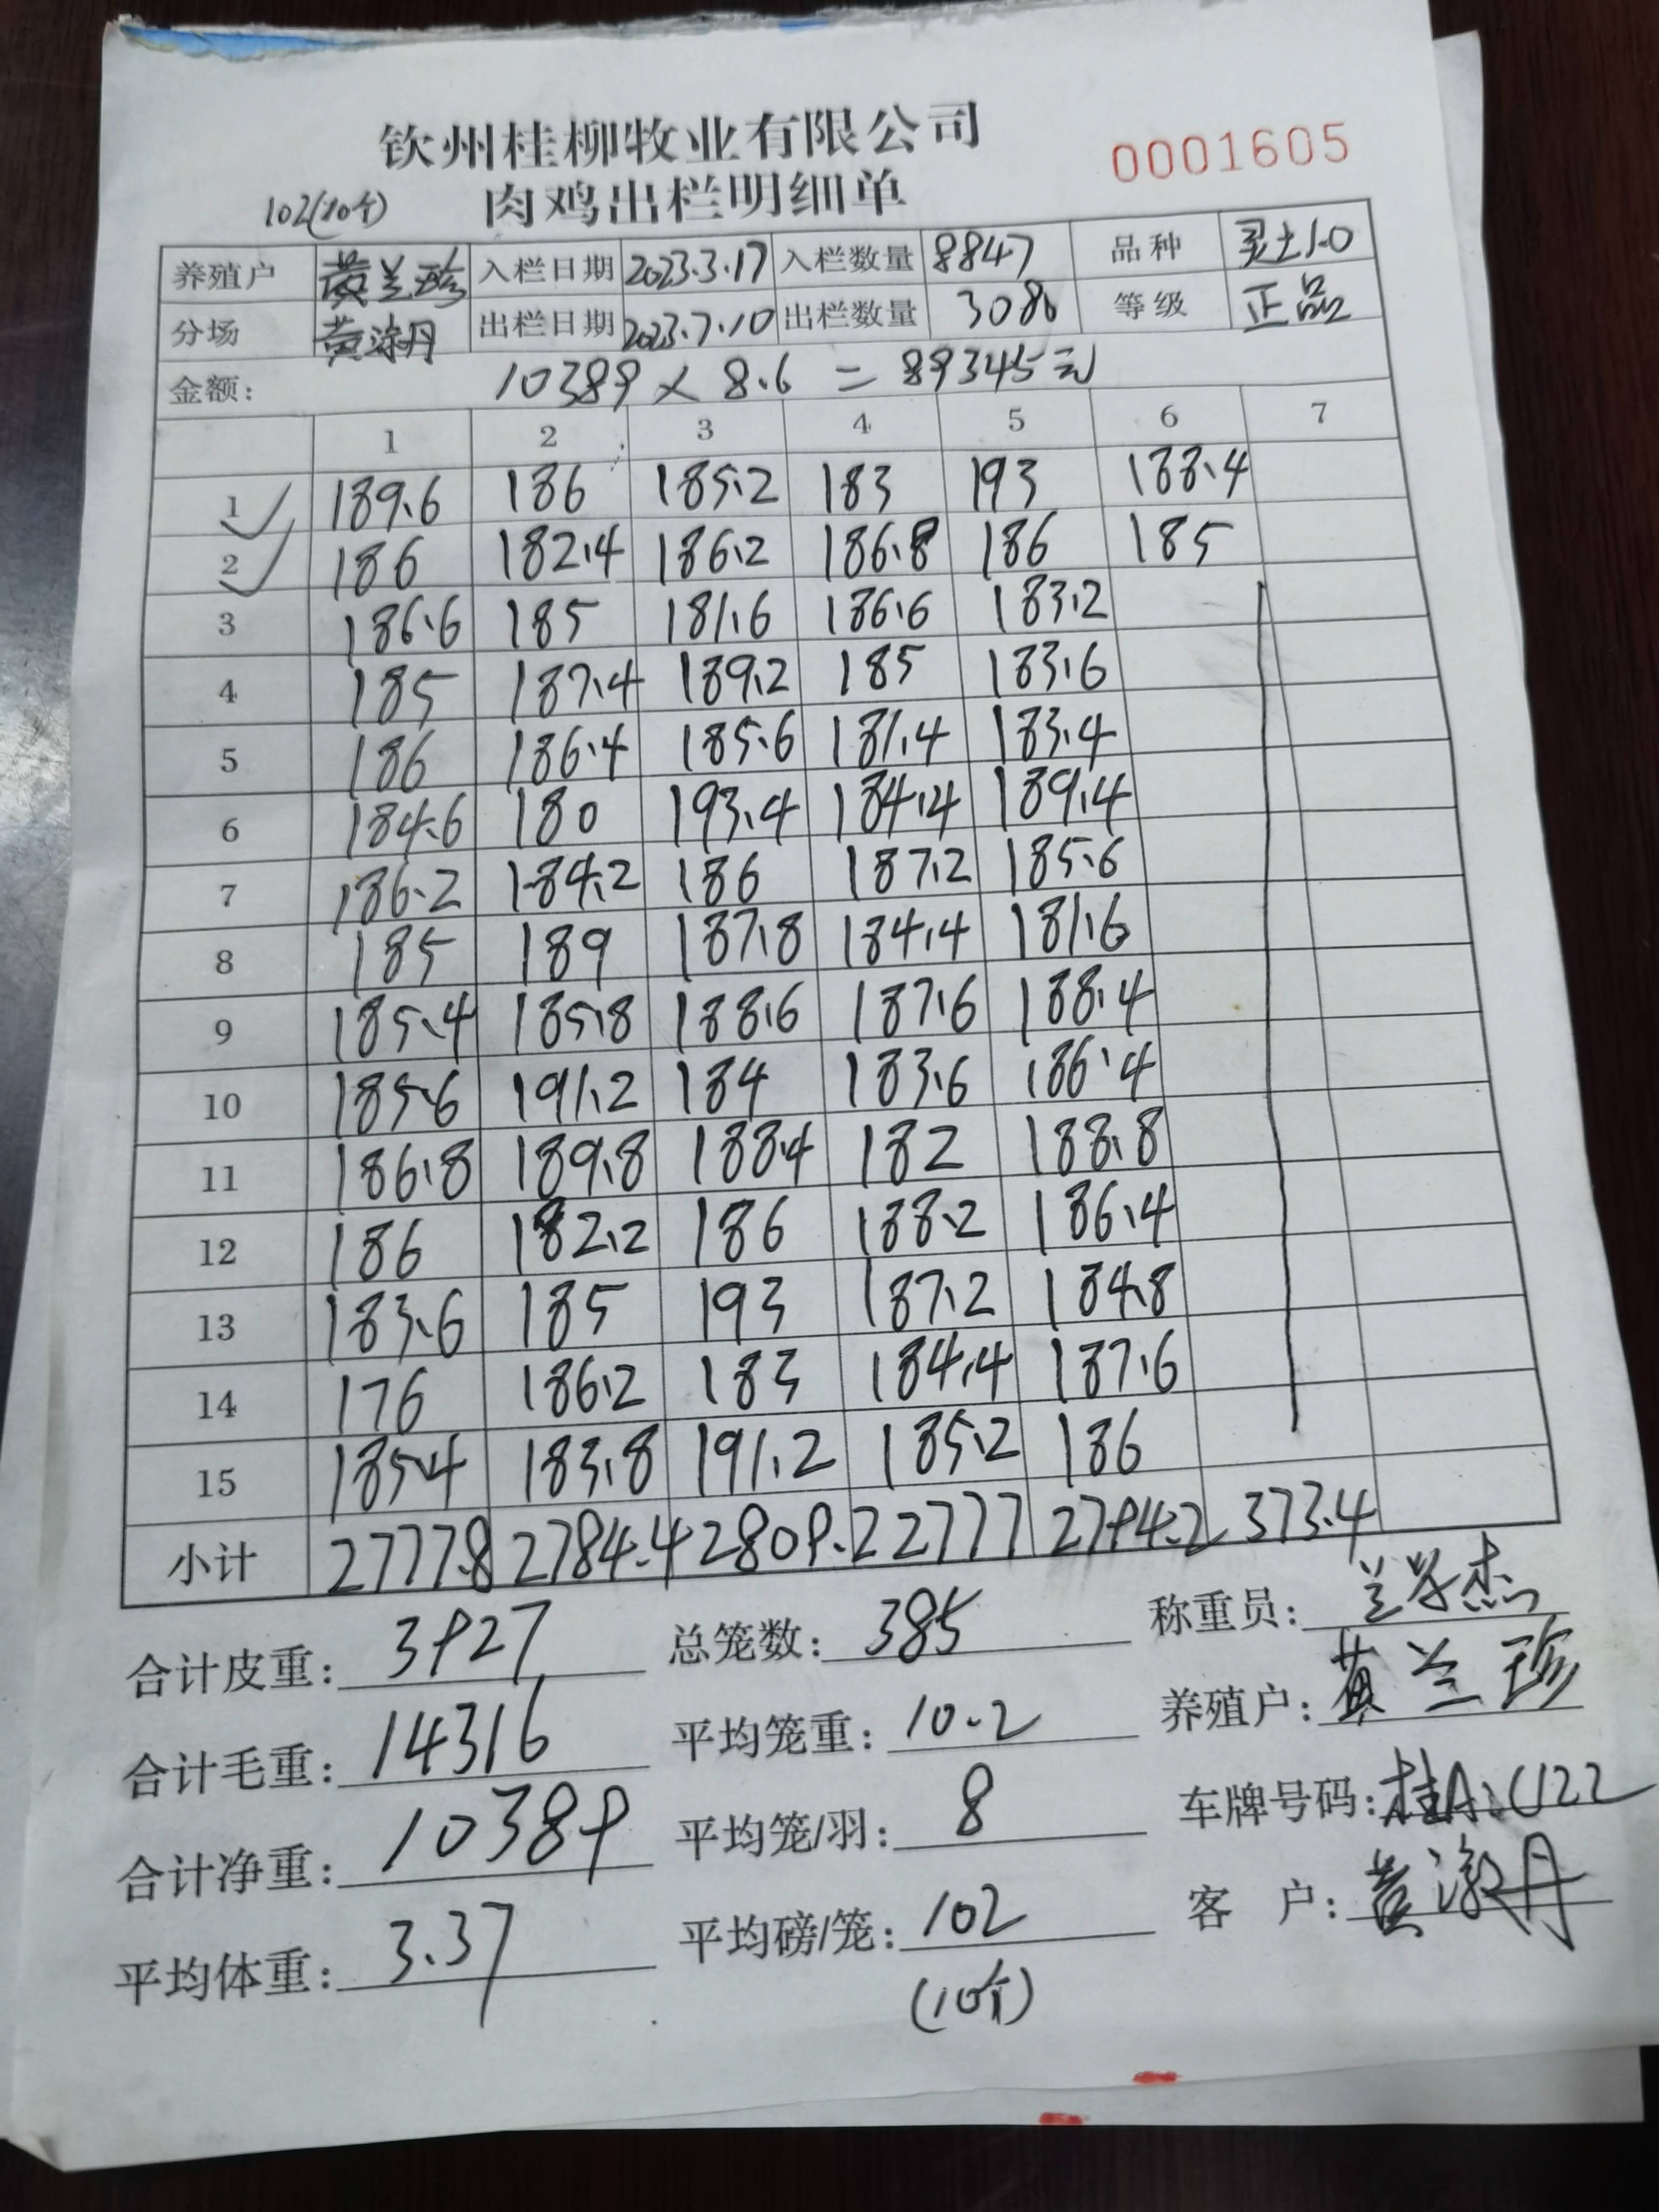 钦州桂柳牧业有限公司
0001605
102(10个) 肉鸡出栏明细单
养殖户 黄兰珍 入栏日期 2023.3.17 入栏数量 8847 品种 灵土1.0
分场 黄 丹 出栏日期 2023.7.10 出栏数量 3080 等级 正品
金额: 10389 × 8.6 = 89345元
1 2 3 4 5 6 7
1 189.6 186 185.2 183 193 188.4
2 186 182.4 186.2 186.8 186 185
3 186.6 185 181.6 186.6 183.2
4 185 187.4 189.2 185 183.6
5 186 186.4 185.6 181.4 183.4
6 184.6 180 193.4 184.4 189.4
7 186.2 184.2 186 187.2 185.6
8 185 189 187.8 184.4 181.6
9 185.4 185.8 188.6 187.6 188.4
10 185.6 191.2 184 183.6 186.4
11 186.8 189.8 188.4 182 188.8
12 186 182.2 186 188.2 186.4
13 183.6 185 193 187.2 184.8
14 176 186.2 183 184.4 187.6
15 185.4 183.8 191.2 185.2 186
小计 2777.8 2784.4 2809.2 2777 2794.2 373.4
合计皮重: 3927 总笼数: 385 称重员: 兰 杰
合计毛重: 14316 平均笼重: 10.2 养殖户: 黄兰珍
合计净重: 10389 平均笼/羽: 8 车牌号码: 桂A:U22
平均体重: 3.37 平均磅/笼: 102 客户: 黄 丹
(10个)